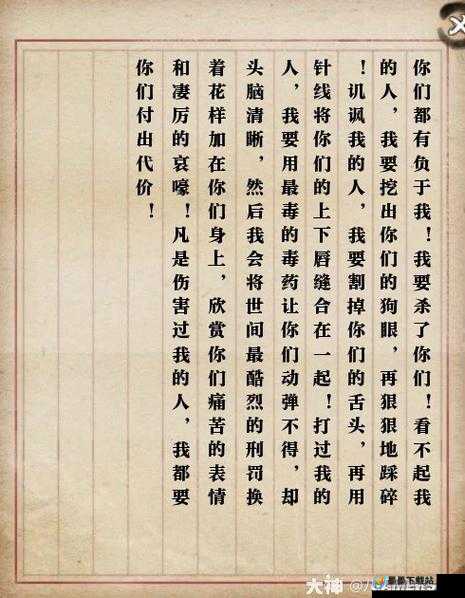 你们都有负于我！我要杀了你们！看不起我
的人，我要挖出你们的狗眼，再狠狠地踩碎
！讥讽我的人，我要割掉你们的舌头，再用
针线将你们的上下唇缝合在一起！打过我的
人，我要用最毒的毒药让你们动弹不得，却
头脑清晰，然后我会将世间最酷烈的刑罚换
着花样加在你们身上，欣赏你们痛苦的表情
和凄厉的哀嚎！凡是伤害过我的人，我都要
你们付出代价！
大神
墨墨下载站